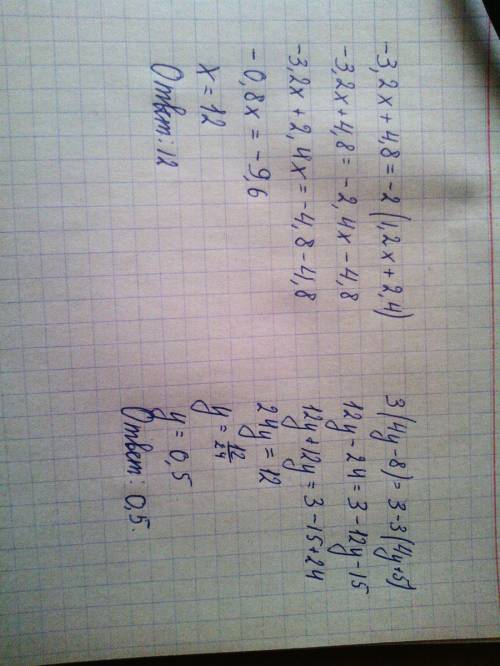 -3,2x + 4,8 = -2 (1,2x + 2,4)
-3,2x + 4,8 = -2,4x - 4,8
-3,2x + 2,4x = -4,8 - 4,8
-0,8x = -9,6
x = 12
Ответ: 12
3(4y-8) = 3-3(4y+5)
12y - 24 = 3 - 12y - 15
12y + 12y = 3 - 15 + 24
24y = 12
y = 12/24
y = 0,5
Ответ: 0,5.